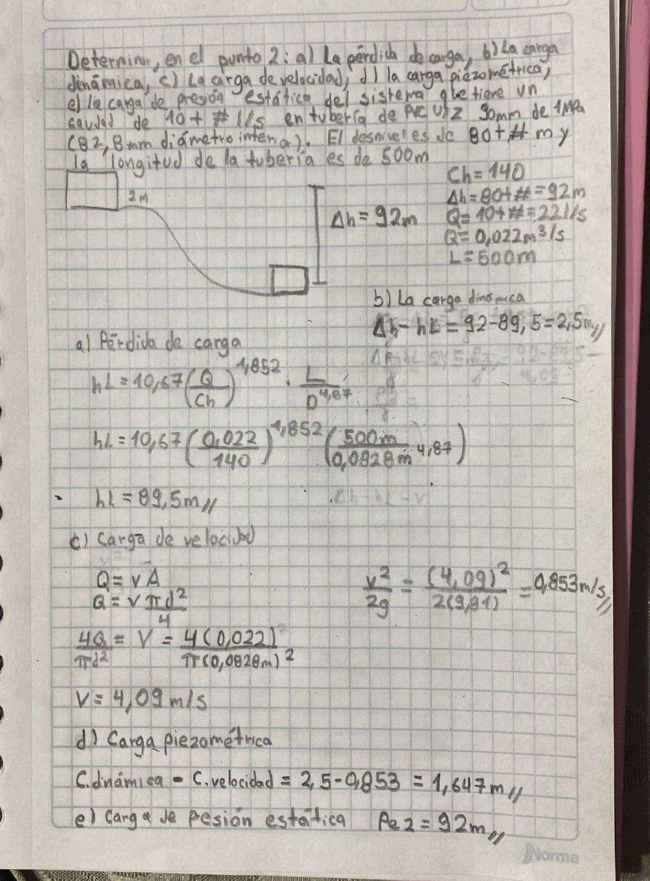 Determinar, en el punto 2: a) La pérdida de carga, b) La carga
dinámica, c) La carga de velocidad, d) la carga piezométrica,
e) la carga de presión estática del sistema que tiene un
caudal de 10 + # l/s en tubería de PVC UZ 90mm de 1MPa
(82,8mm diámetro interior). El desnivel es de 80+# m y
la longitud de la tubería es de 500m
2m
Δh = 92m
Ch = 140
Δh = 80+# = 92m
Q = 10+# = 22 l/s
Q = 0,022m³/s
L = 500m
b) La carga dinámica
Δh - hL = 92 - 89,5 = 2,5m//
a) Pérdida de carga
hL = 10,67 (Q/Ch)^1,852 · L/D^4,87
hL = 10,67 (0,022/140)^1,852 (500m/0,0828m^4,87)
hL = 89,5m//
c) Carga de velocidad
Q = v A
Q = v πd²/4
4Q/πd² = V = 4(0,022)/π(0,0828m)²
V = 4,09 m/s
v²/2g = (4,09)²/2(9,81) = 0,853m/s//
d) Carga piezométrica
C. dnámica - C. velocidad = 2,5 - 0,853 = 1,647m//
e) Carga de presión estática Pe2 = 92m//
Norma